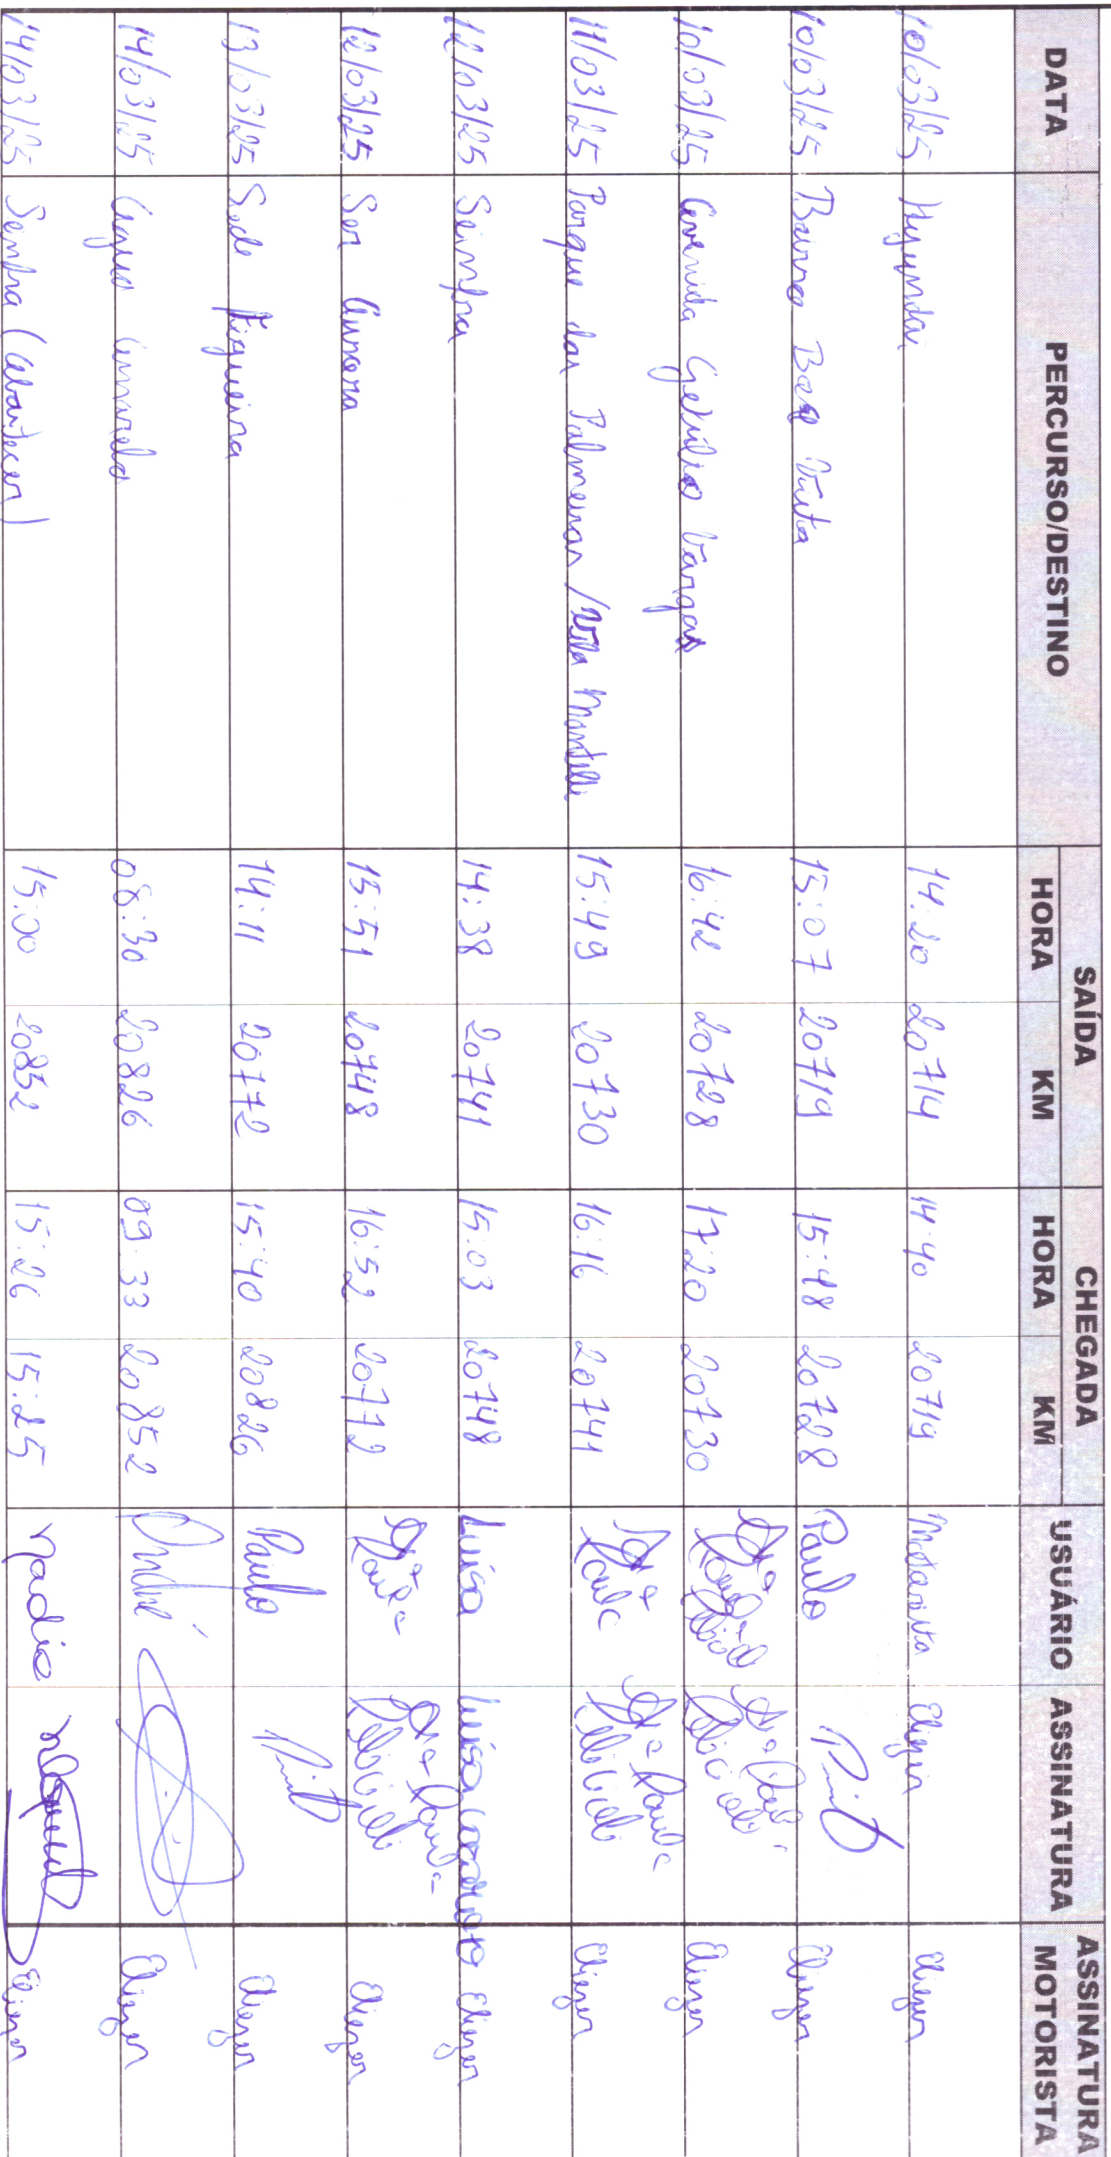 DATA PERCURSO/DESTINO SAÍDA CHEGADA USUÁRIO ASSINATURA ASSINATURA MOTORISTA
HORA KM HORA KM
10/03/25 Hyundai 14:20 20714 14:40 20719 Motorista Eliezer Eliezer
10/03/25 Bairro Boa Vista 15:07 20719 15:48 20728 Paulo Eliezer
10/03/25 Avenida Getúlio Vargas 16:42 20728 17:20 20730 Eliezer
11/03/25 Parque das Palmeiras / Vila Mantelli 15:49 20730 16:16 20741 Ana Paula Ana Paula Eliezer
12/03/25 Seinfra 14:38 20741 15:03 20748 Luísa Luísa Eliezer
12/03/25 Ser Aurora 15:51 20748 16:52 20772 Ana Paula Ana Paula Eliezer
13/03/25 Sede Figueira 14:11 20772 15:40 20826 Paulo Eliezer
14/03/25 Água Amarela 08:30 20826 09:33 20852 André Eliezer
14/03/25 Seinfra (Abastecer) 15:00 20852 15:26 15:25 Nadia Eliezer